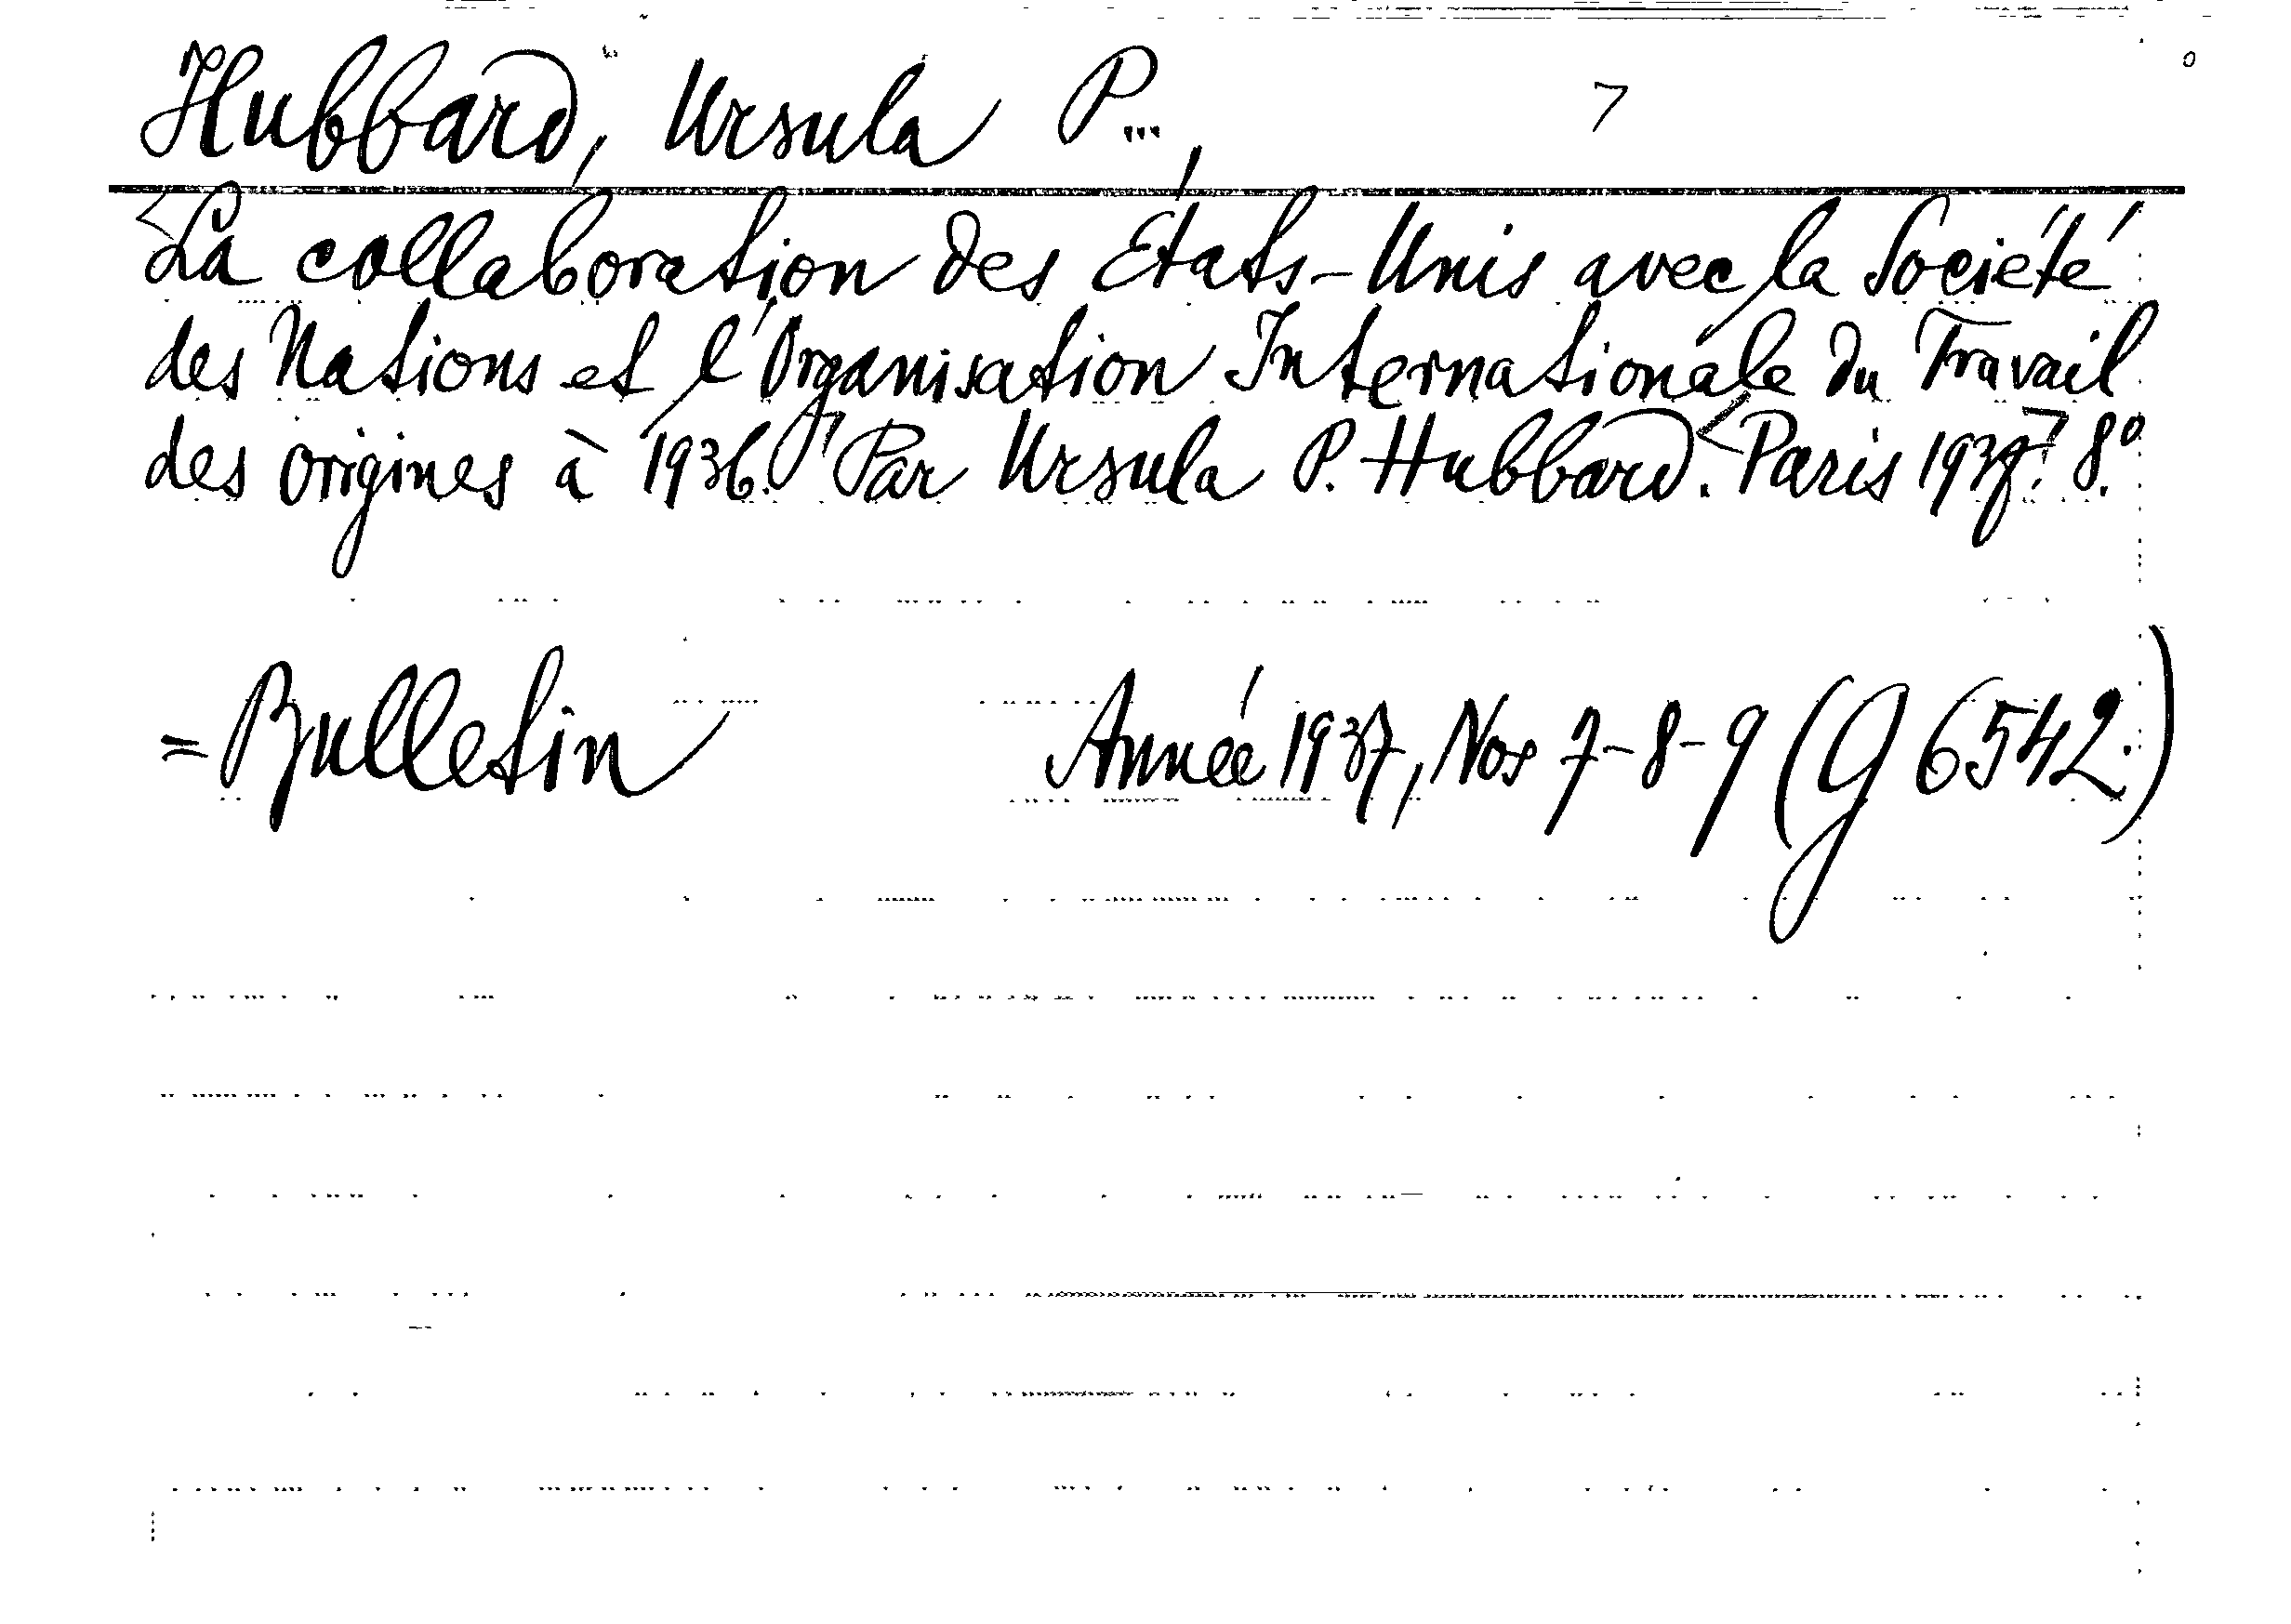 Hubbard, Ursula P..., 7
La collaboration des États-Unis avec la Société
des Nations et l'Organisation Internationale du Travail
des origines à 1936. Par Ursula P. Hubbard. Paris 1937. 8.°
= Bulletin Année 1937, Nos 7-8-9 (G 6542.)